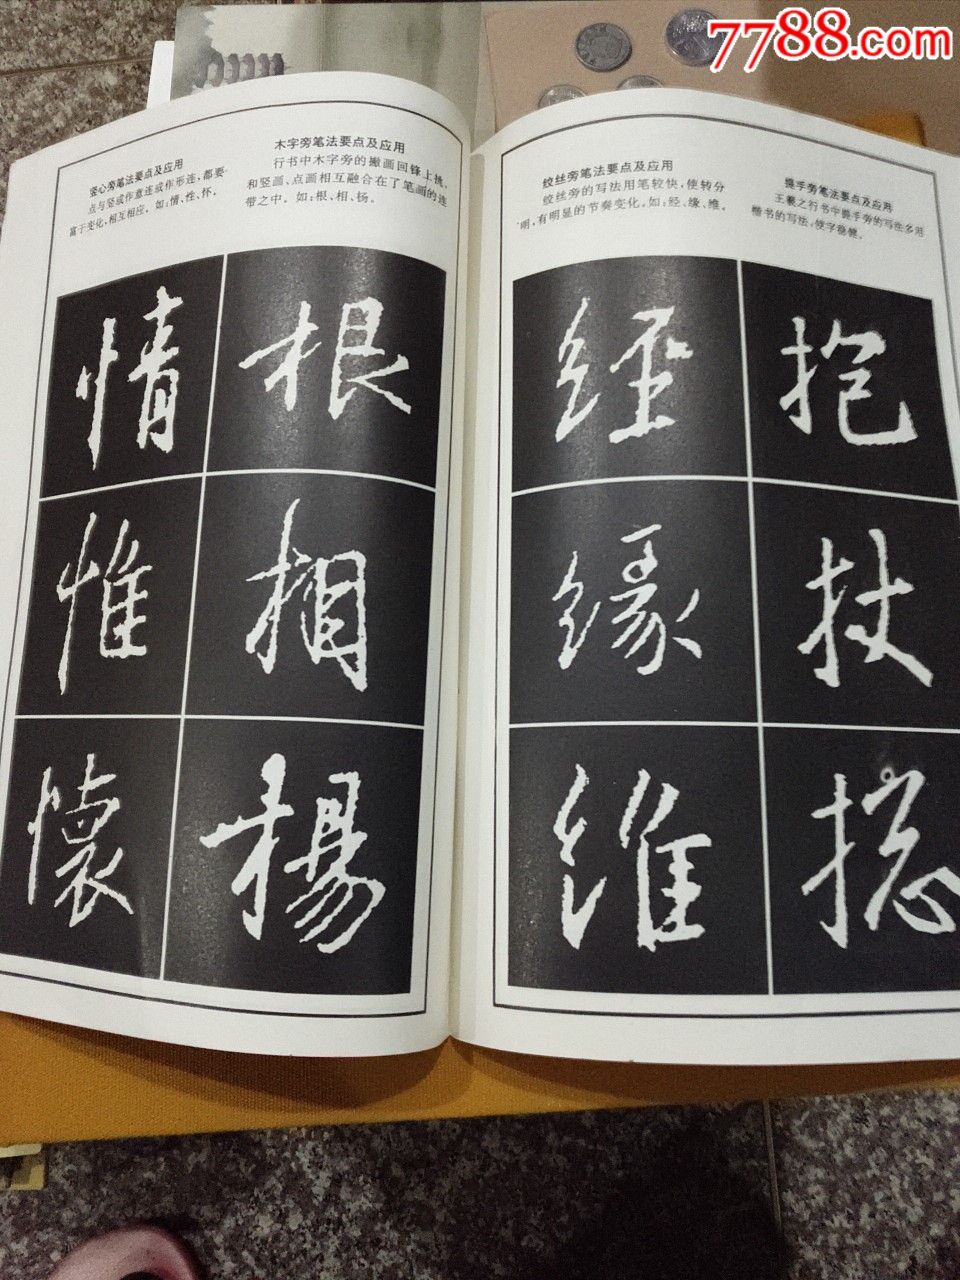 7788.com
竖心旁笔法要点及应用
点与竖或作意连或作形连,都要
富于变化,相互相应。如:情、性、怀。
木字旁笔法要点及应用
行书中木字旁的撇画回锋上挑,
和竖画、点画相互融合在了笔画的连
带之中。如:根、相、杨。
情 根
惟 相
懷 楊
绞丝旁笔法要点及应用
绞丝旁的写法用笔较快,使转分
明,有明显的节奏变化。如:经、缘、维。
提手旁笔法要点及应用
王羲之行书中提手旁的写法多用
楷书的写法,使字稳健。
經 抱
緣 扙
維 摠